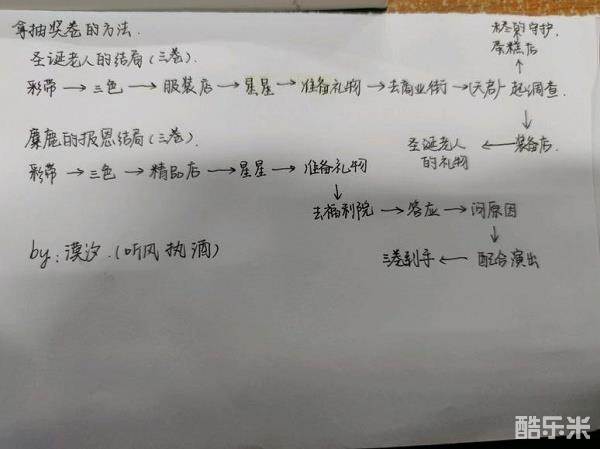 拿抽奖卷的方法.
圣诞老人的结局(三卷).
彩带→三色→服装店→星星→准备礼物→去商业街→(天启)一起调查.
的守护
蛋糕店
装备店.
圣诞老人
的礼物
麋鹿的报恩结局(三卷).
彩带→三色→精品店→星星→准备礼物
去福利院→答应→问原因
三卷到手←配合演出
by:漠汐.(听风执酒)
酷乐米